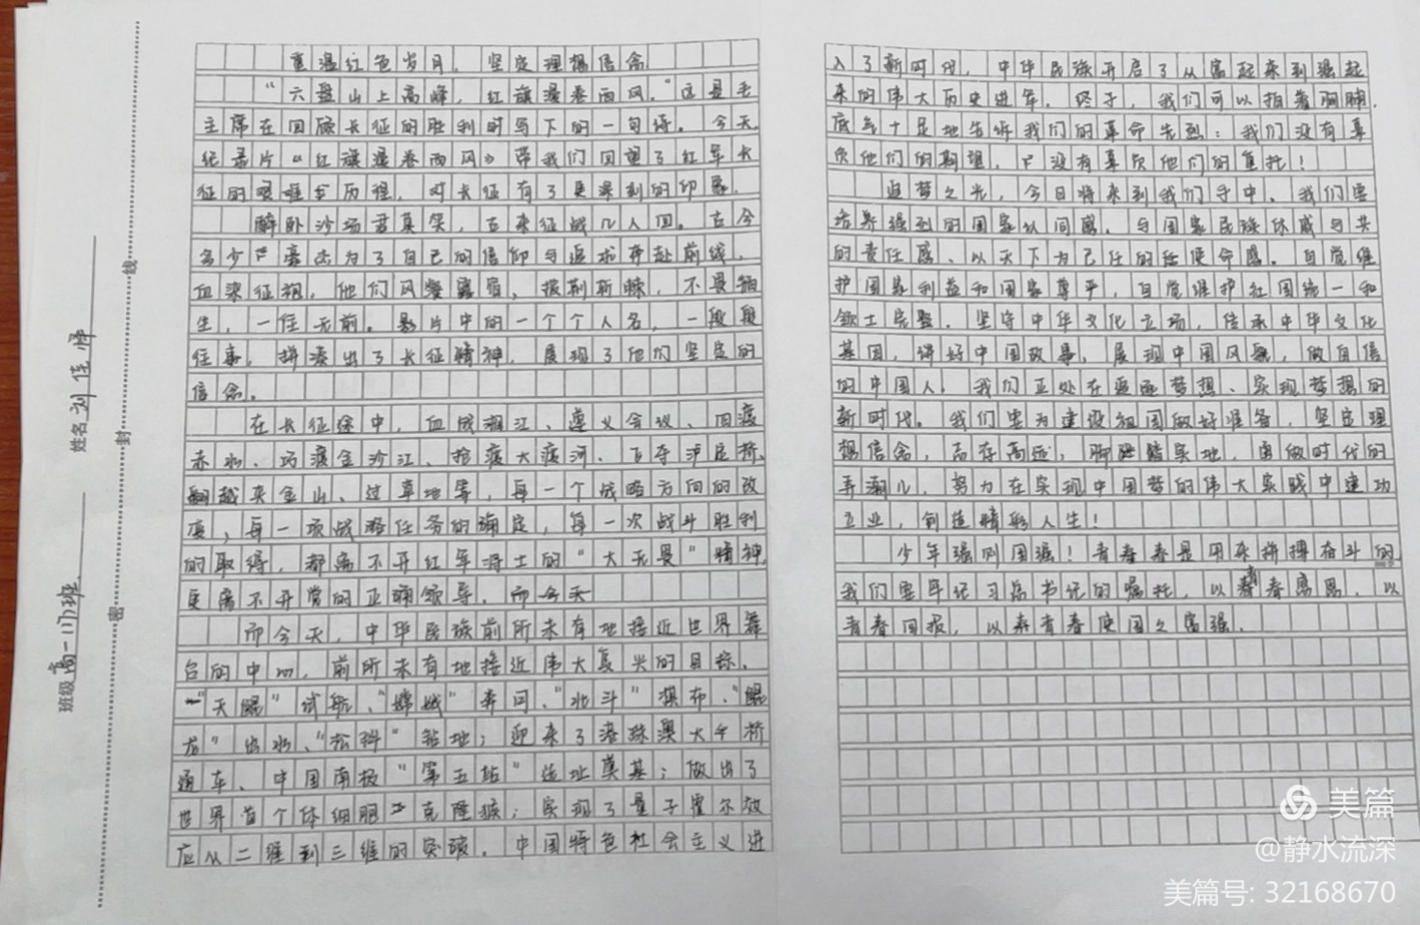 重温红色岁月，坚定理想信念
“六盘山上高峰，红旗漫卷西风。”这是毛
主席在回顾长征的胜利时写下的一句诗。今天，
纪录片《红旗漫卷西风》带我们回望了红军长
征的艰难与历程，对长征有了更深刻的印象。
醉卧沙场君莫笑，古来征战几人回。古今
多少英杰为了自己的信仰与追求奔赴前线，
血染征袍，他们风餐露宿，披荆斩棘，不畏牺
牲，一往无前。影片中的一个个人名，一段段
往事，拼凑出了长征精神，展现了他们坚定的
信念。
在长征途中，血战湘江、遵义会议、四渡
赤水、巧渡金沙江、抢渡大渡河、飞夺泸定桥、
翻越夹金山、过草地等，每一个战略方向的改
变，每一项战略任务的确定，每一次战斗胜利
的取得，都离不开红军将士的“大无畏”精神，
更离不开党的正确领导。而今天
而今天，中华民族前所未有地接近世界舞
台的中心，前所未有地接近伟大复兴的目标。
“天鲲”试航、“嫦娥”奔月、“北斗”棋布、“鲲
龙”出水、“松科”钻地；迎来了港珠澳大桥
通车、中国南极“第五站”选址奠基；做出了
世界首个体细胞克隆猴；实现了量子霍尔效
应从二维到三维的突破。中国特色社会主义进
入了新时代，中华民族开启了从富起来到强起
来的伟大历史进军。终于，我们可以拍着胸脯，
底气十足地告诉我们的革命先烈：我们没有辜
负他们的期望，只没有辜负他们的重托！
追梦之光，今日将来到我们手中，我们要
培养强烈的国家认同感，与国家民族休戚与共
的责任感、以天下为己任的使命感。自觉维
护国家利益和国家尊严，自觉维护红国统一和
领土完整。坚守中华文化立场，传承中华文化
基因，讲好中国故事，展现中国风貌，做自信
的中国人。我们正处在追逐梦想、实现梦想的
新时代。我们要为建设祖国做好准备，坚定理
想信念，志存高远，脚踏实地，勇做时代的
弄潮儿，努力在实现中国梦的伟大实践中建功
立业，创造精彩人生！
少年强则国强！青春是用来拼搏奋斗的
我们要牢记习总书记的嘱托，以青春感恩，以
青春回报，以青春使国之富强。
班级 高一
姓名 刘佳
密 封 线
美篇
@静水流深
美篇号: 32168670